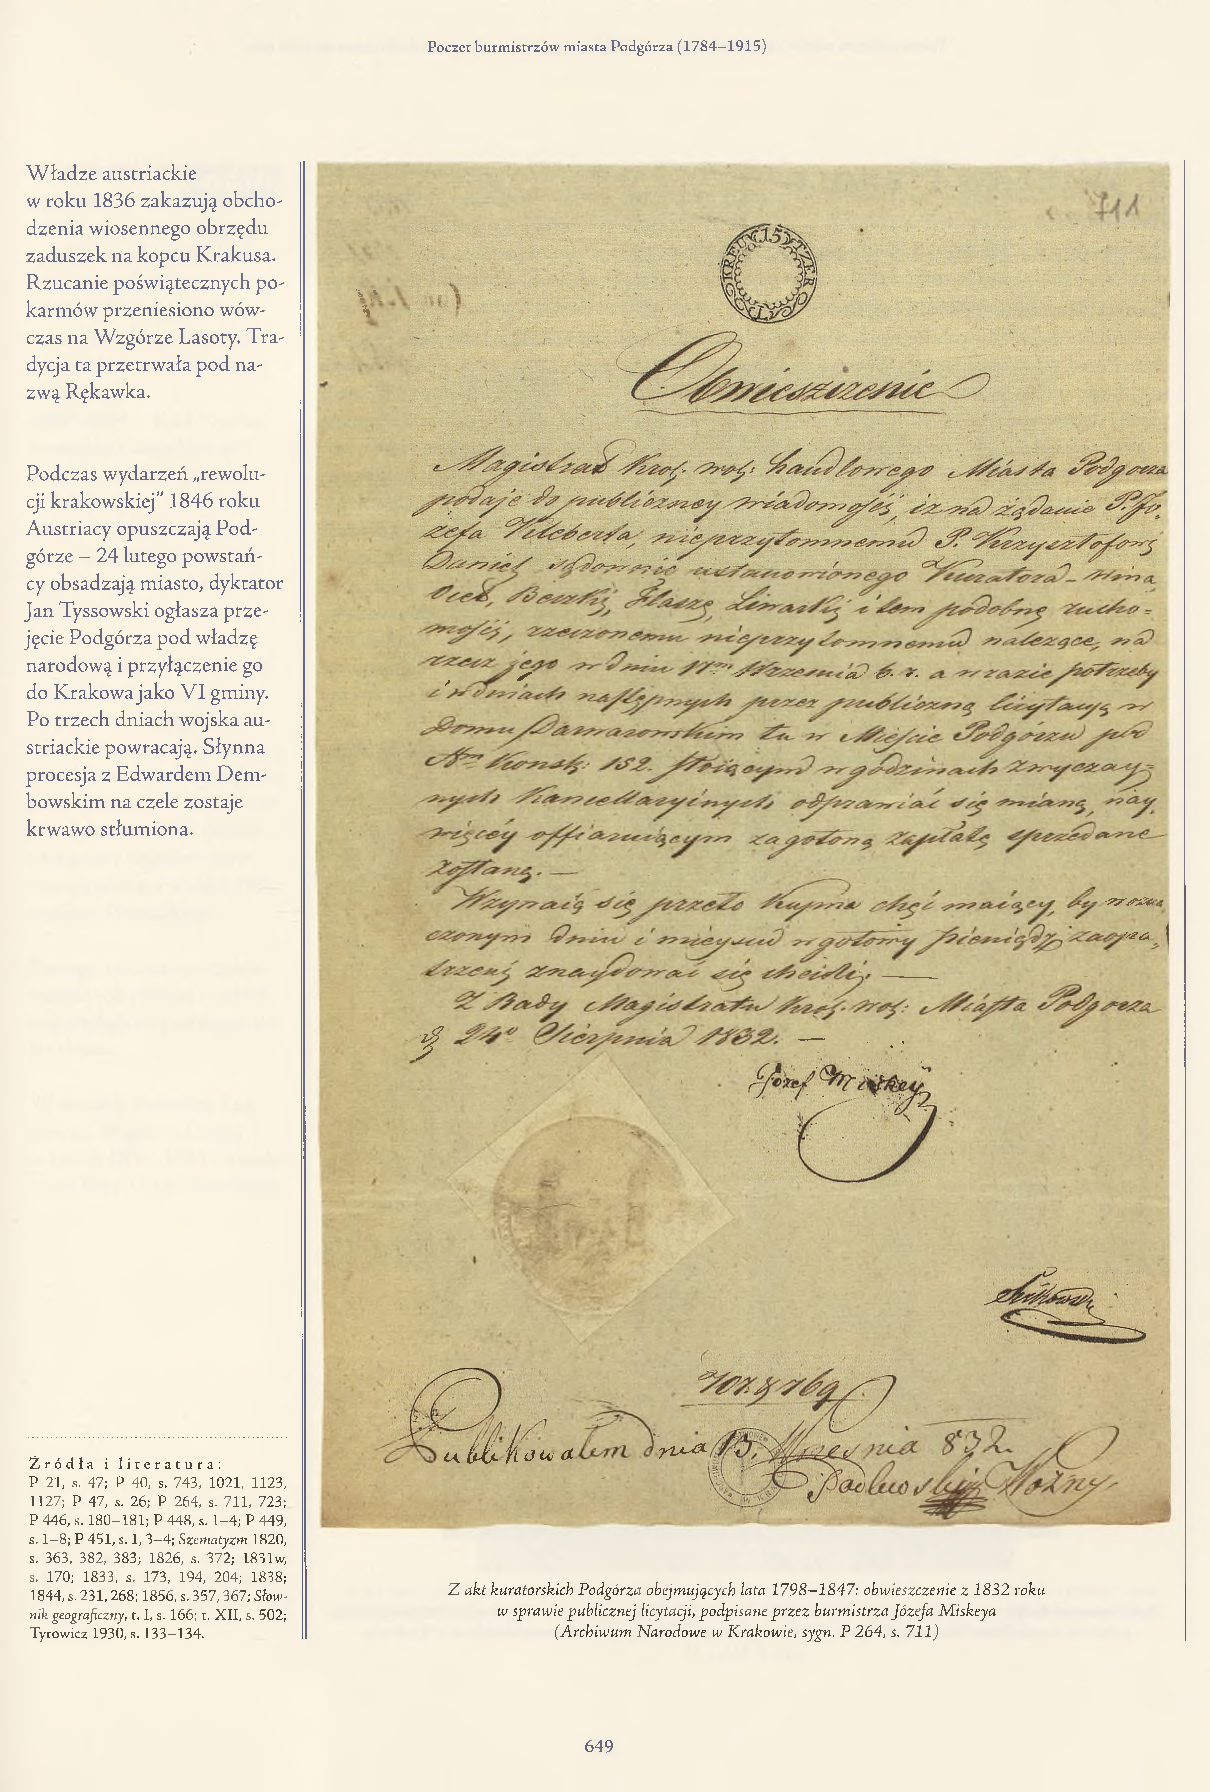 Poczet burmistrzów miasta Podgórza (1784–1915)
Władze austriackie
w roku 1836 zakazują obcho-
dzenia wiosennego obrzędu
zaduszek na kopcu Krakusa.
Rzucanie poświątecznych po-
karmów przeniesiono wów-
czas na Wzgórze Lasoty. Tra-
dycja ta przetrwała pod na-
zwą Rękawka.
Podczas wydarzeń „rewolu-
cji krakowskiej” 1846 roku
Austriacy opuszczają Pod-
górze – 24 lutego powstań-
cy obsadzają miasto, dyktator
Jan Tyssowski ogłasza prze-
jęcie Podgórza pod władzę
narodową i przyłączenie go
do Krakowa jako VI gminy.
Po trzech dniach wojska au-
striackie powracają. Słynna
procesja z Edwardem Dem-
bowskim na czele zostaje
krwawo stłumiona.
Źródła i literatura:
P 21, s. 47; P 40, s. 743, 1021, 1123,
1127; P 47, s. 26; P 264, s. 711, 723;
P 446, s. 180–181; P 448, s. 1–4; P 449,
s. 1–8; P 451, s. 1, 3–4; Szematyzm 1820,
s. 363, 382, 383; 1826, s. 372; 1831w,
s. 170; 1833, s. 173, 194, 204; 1838;
1844, s. 231, 268; 1856, s. 357, 367; Słow-
nik geograficzny, t. I, s. 166; t. XII, s. 502;
Tyrowicz 1930, s. 133–134.
711
15 KREUTZER
Obwieszczenie
Magistrat Krol: wol: handlowego Miasta Podgorza
podaje do publiczney wiadomości, iz na żądanie P. Jo-
zefa Kleberta, nieprzytomnemu P. Krzysztofowi
Daniel sądownie ustanowionego Kuratora – wina,
Ocet, Beczki, Flaszę, Liwarki i tem podobnę rucho=
mości, rzeczonemu nieprzytomnemu należące, na
rzecz jego w dniu 17m Wrzesnia b. r. a w razie potrzeby
i w dniach następnych przez publiczną licytacyą w
Domu Darwarowskim tu w Mieście Podgórzu pod
Nm Konsk: 152. stoiącym w godzinach zwyczay=
nych Kancellaryinych odprawiać się mianą, nay-
więcéy offiaruiącym za gotoną zapłatę sprzedane
zostaną. —
Wzywaią się przeto Kupna chęć maiący, by w ozna-
czonym dniu i mieyscu w gotowy pieniądz zaopa-
trzeni znaydować się chcieli. —
Z Rady Magistratu Krol. wol: Miasta Podgorza
24o Sierpnia 1832. —
Jozef Miskey
707 & 769
Publikowalem dnia 13. Wrzesnia 832.
Padlewski Wozny.
Z akt kuratorskich Podgórza obejmujących lata 1798–1847: obwieszczenie z 1832 roku
w sprawie publicznej licytacji, podpisane przez burmistrza Józefa Miskeya
(Archiwum Narodowe w Krakowie, sygn. P 264, s. 711)
649